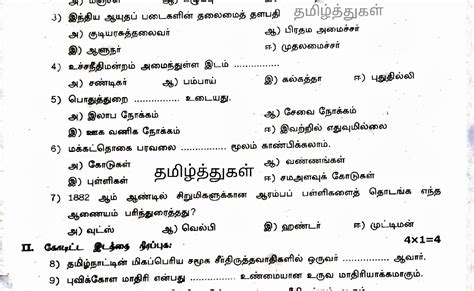 தமிழ்த்துகள்
3) இந்திய ஆயுதப் படைகளின் தலைமைத் தளபதி
அ) குடியரசுத்தலைவர் ஆ) பிரதம அமைச்சர்
இ) ஆளுநர் ஈ) முதலமைச்சர்
4) உச்சநீதிமன்றம் அமைந்துள்ள இடம் ...............
அ) சண்டிகர் ஆ) பம்பாய் இ) கல்கத்தா ஈ) புதுதில்லி
5) பொதுத்துறை ............... உடையது.
அ) இலாப நோக்கம் ஆ) சேவை நோக்கம்
இ) ஊக வணிக நோக்கம் ஈ) இவற்றில் எதுவுமில்லை
6) மக்கட்தொகை பரவலை ............... மூலம் காண்பிக்கலாம்.
அ) கோடுகள் ஆ) வண்ணங்கள்
தமிழ்த்துகள்
இ) புள்ளிகள் ஈ) சமஅளவுக் கோடுகள்
7) 1882 ஆம் ஆண்டில் சிறுமிகளுக்கான ஆரம்பப் பள்ளிகளைத் தொடங்க எந்த
ஆணையம் பரிந்துரைத்தது?
அ) வுட்ஸ் ஆ) வெல்பி இ) ஹண்டர் ஈ) முட்டிமன்
II. கோடிட்ட இடத்தை நிரப்புக: 4×1=4
8) தமிழ்நாட்டின் மிகப்பெரிய சமூக சீர்திருத்தவாதிகளில் ஒருவர் ............... ஆவார்.
9) புவிக்கோள மாதிரி என்பது ............... உண்மையான உருவ மாதிரியாக்கமாகும்.